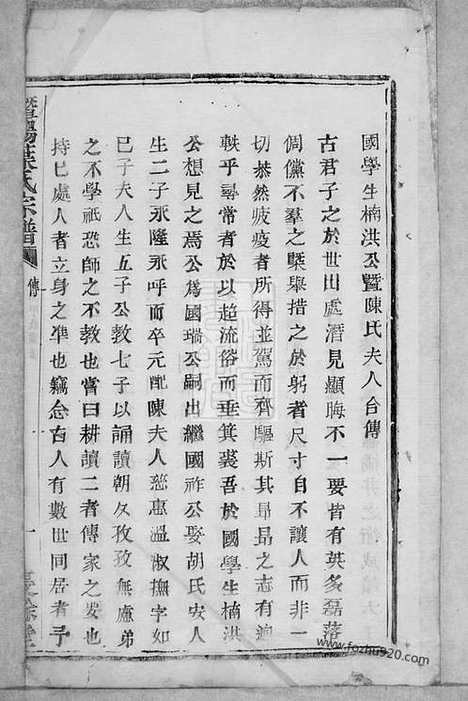 國學生楠洪公暨陳氏夫人合傳
古君子之於世出處潛見顯晦不一要皆有英多磊落
倜儻不羣之槩舉措之於躬者尺寸自不讓人而非一
切恭然疲疫者所得並駕而齊驅斯其昻昻之志有迥
軼乎尋常者於以超流俗而垂箕裘吾於國學生楠洪
公想見之焉公爲國瑞公嗣出繼國祚公娶胡氏安人
生二子永隆永呼而卒元配陳夫人慈惠溫淑撫字如
已子夫人生五子公教七子以誦讀朝夕孜孜無慮弟
之不學祇恐師之不教也嘗曰耕讀二者傳家之要也
持已處人者立身之凖也竊念古人有數世同居者予
暨陽 氏宗譜
傳
一
www.fozhu920.com